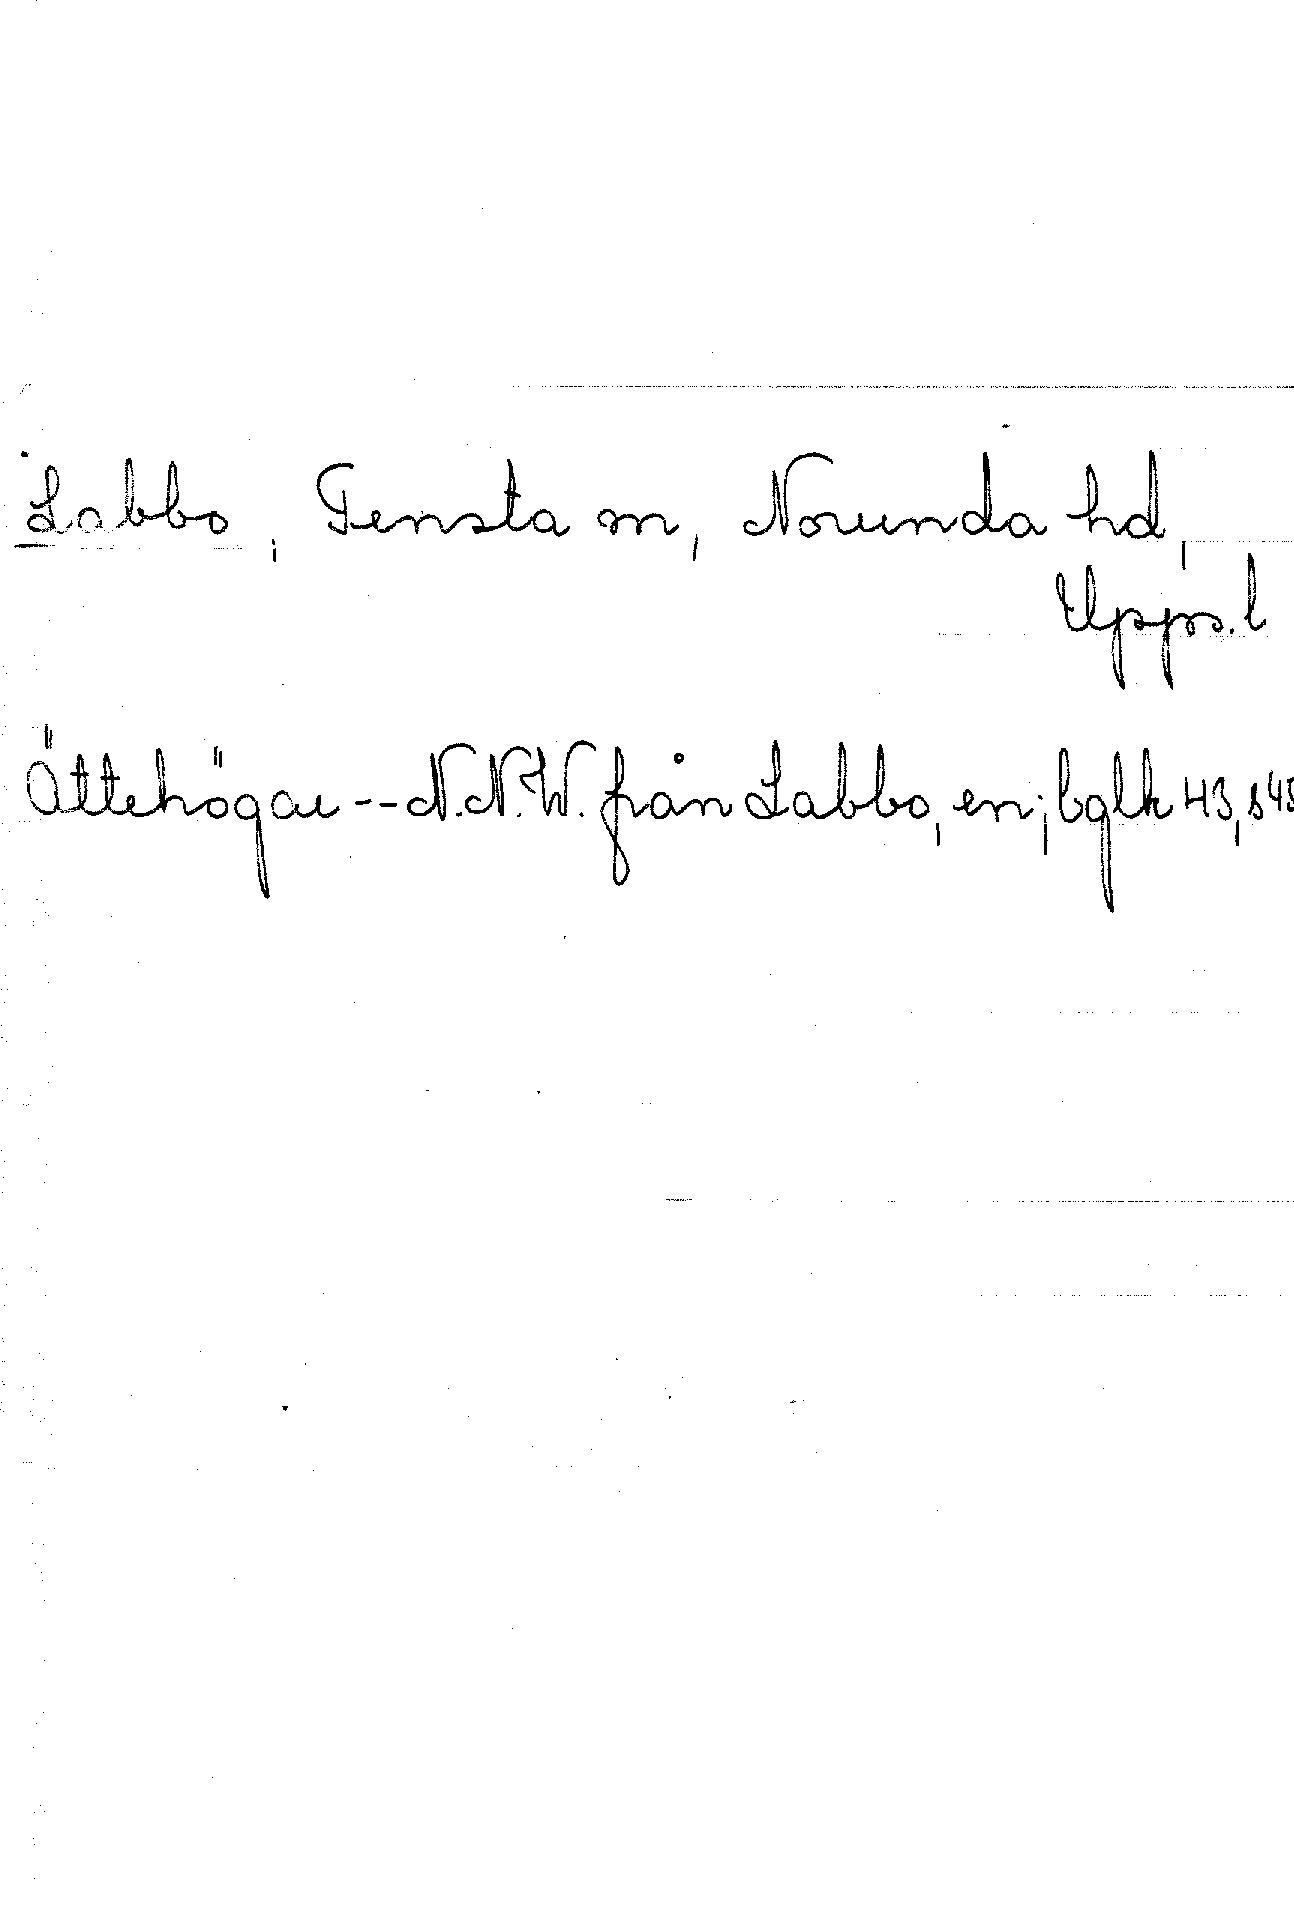 Labbo, Tensta sn, Norunda hd,
Upps. l
Ättehögar -- N.N.W. från Labbo, en; bglk 43, s 45